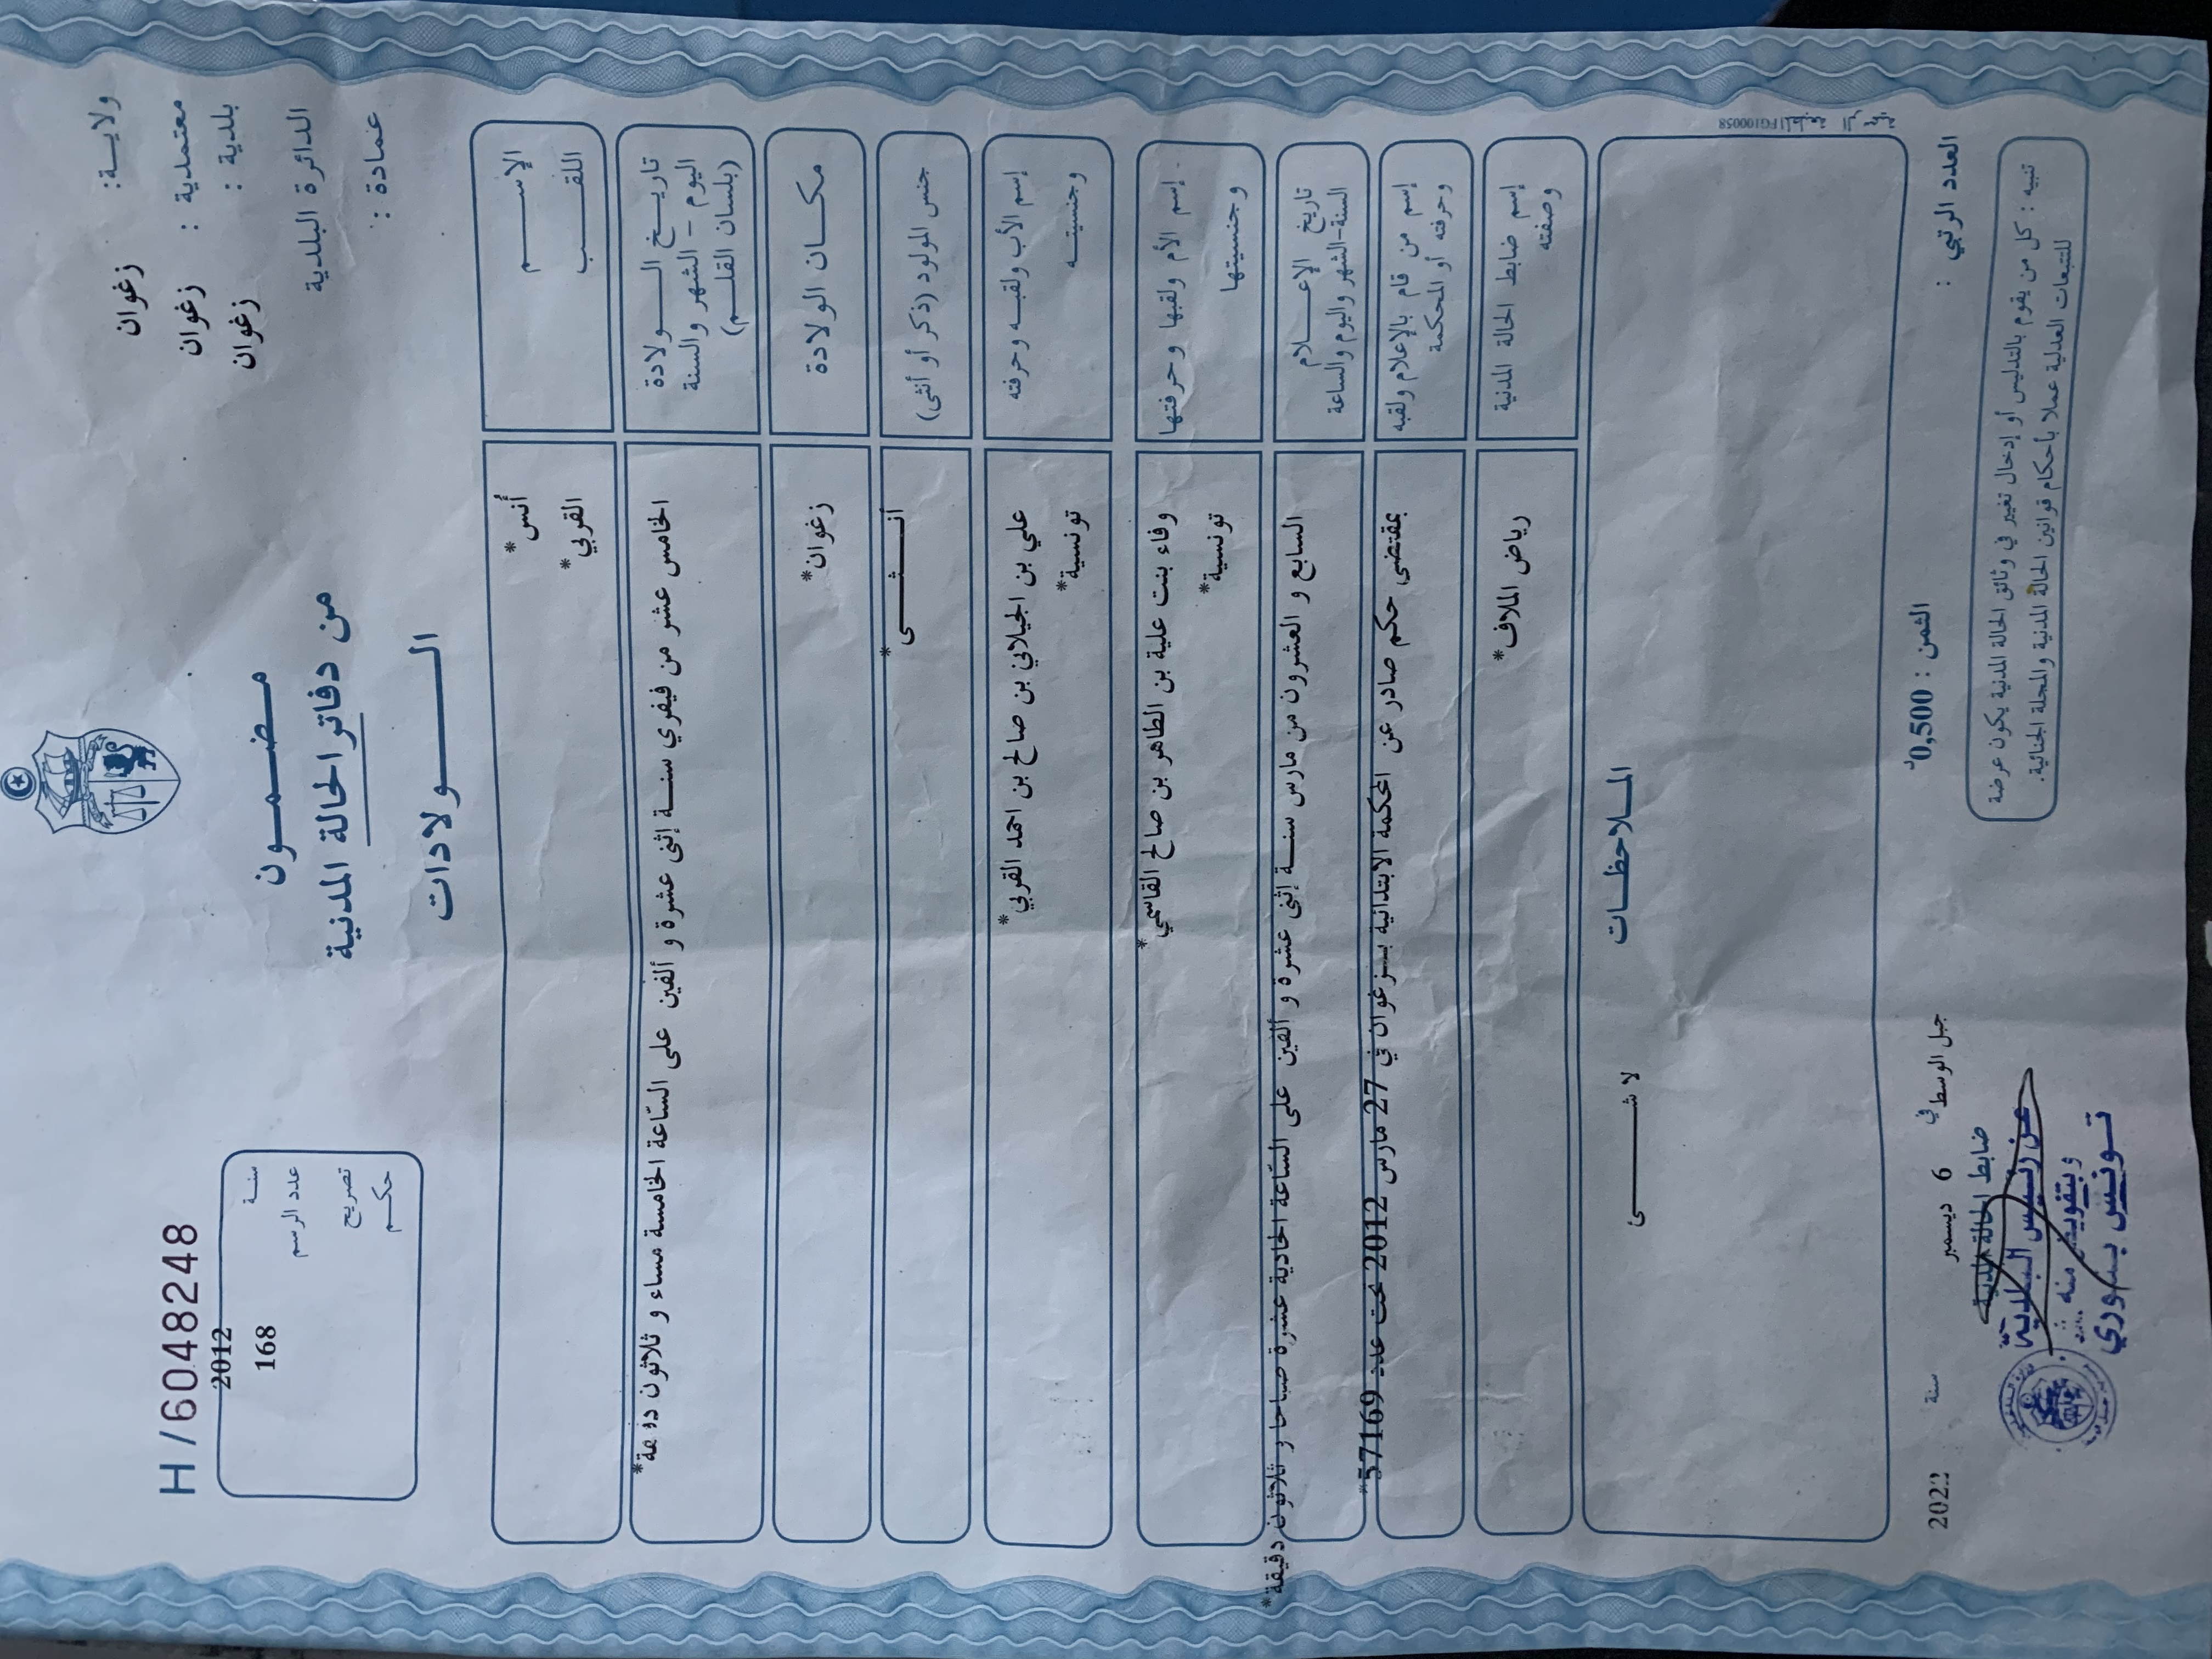 ولايـة: زغوان
معتمدية : زغوان
بلدية : زغوان
الدائرة البلدية
عمادة :
مضمـــون
من دفاتر الحالة المدنية
الـــولادات
H/6048248
سنة 2012
عدد الرسم 168
تصريح
حكم
الإســـم
أُنس*
اللقـــب
القربي*
تاريـخ الـــولادة
اليوم - الشهر والسنة
(بلسان القلـم)
الخامس عشر من فيفري سنـــة إثنى عشرة و ألفين على السّاعة الخامسة مساء و ثلاثون دقيقة*
مكــان الولادة
زغوان*
جنس المولود (ذكر أو أنثى)
أنـــثـــى*
إسم الأب ولقبـه وحرفته
وجنسيتـه
علي بن الجيلاني بن صالح بن احمد القربي*
تونسية*
إسم الأم ولقبها وحرفتها
وجنسيتها
وفاء بنت علية بن الطاهر بن صالح القاسمي*
تونسية*
تاريخ الإعـــلام
السنة-الشهر واليوم والساعة
السابع و العشرون من مارس سنـــة إثنى عشرة و ألفين على السّاعة الحادية عشرة صباحا و ثلاثون دقيقة*
إسم من قام بالإعلام ولقبه
وحرفته أو المحكمة
بمقتضى حكم صادر عن المحكمة الابتدائية بـــزغوان في 27 مارس 2012 تحت عدد 57169*
إسم ضابط الحالة المدنية
وصفته
رياض الملاف*
الملاحظـات
لا شـــــئ
PG100058
العدد الرتبي :
الثمن : 0,500د
جبل الوسط في 6 ديسمبر سنة 2022
ضابط الحالة المدنية
عن رئيس البلديّة
وبتفويض منه
تونس بـدوري
تنبيه : كل من يقوم بالتدليس أو إدخال تغيير في وثائق الحالة المدنية يكون عرضة
للتتبعات العدلية عملا بأحكام قوانين الحالة المدنية والمجلة الجنائية.